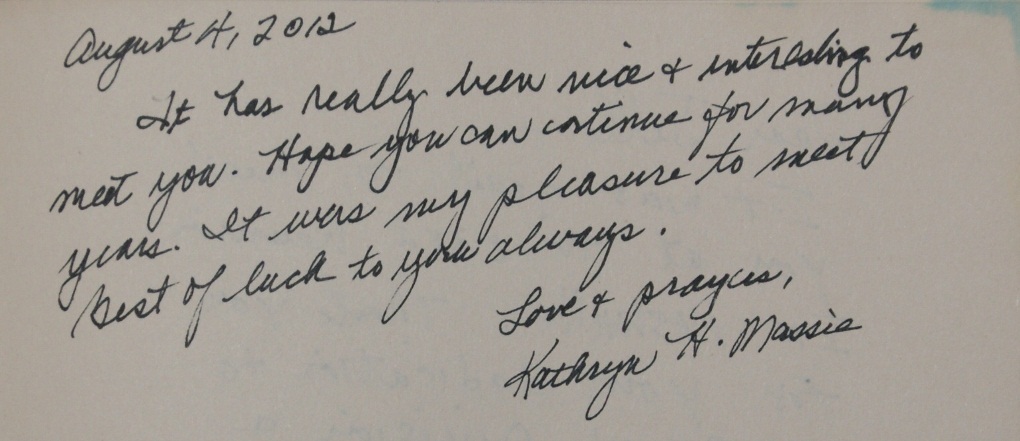 August 4, 2012
It has really been nice & interesting to
meet you. Hope you can continue for many
years. It was my pleasure to meet
Best of luck to you always.
Love & prayers,
Kathryn H. Massie